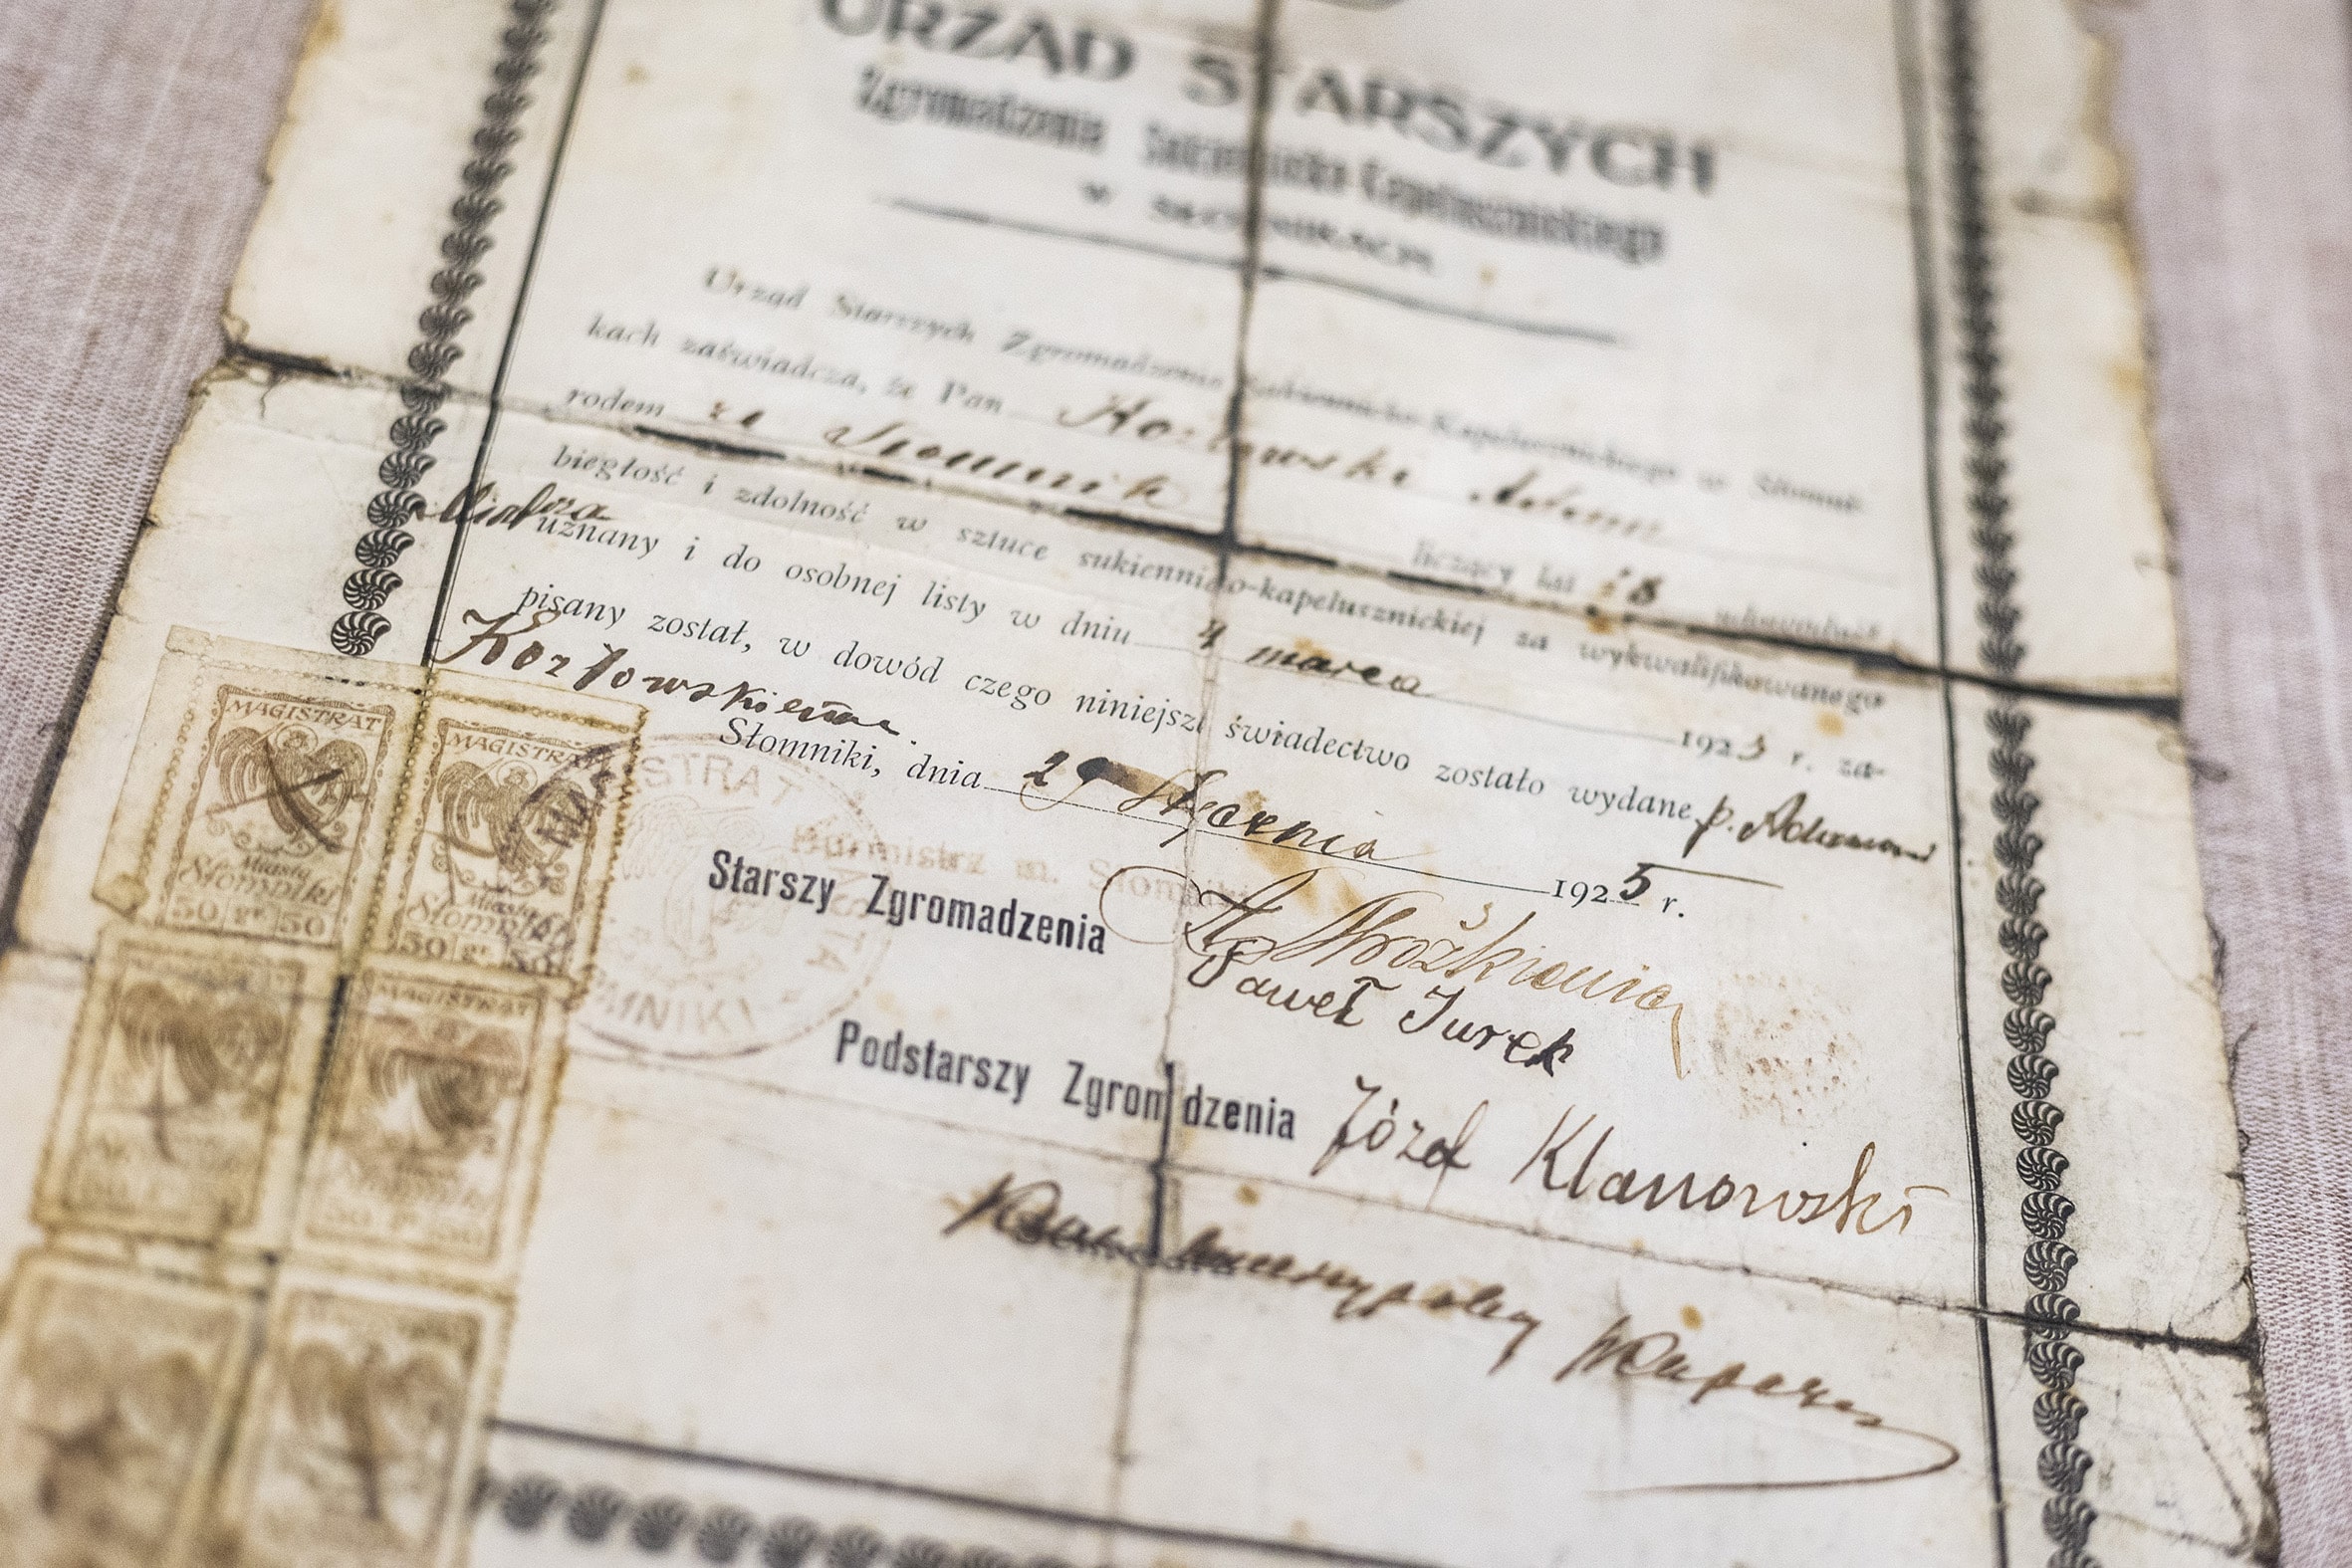 URZĄD STARSZYCH
Zgromadzenia Sukienniczo-Kapeluszniczkiego
w SŁOMNIKACH
Urząd Starszych Zgromadzenia Sukienniczo-Kapeluszniczkiego w Słomni-
kach zaświadcza, że Pan Kozłowski Adam
rodem ze Słomnik liczący lat 18
biegłość i zdolność w sztuce sukienniczo-kapelusznickiej za wykwalifikowanego
uznany i do osobnej listy w dniu 4 marca 1923 r. za-
pisany został, w dowód czego niniejsze świadectwo zostało wydane p. Adamowi
Kozłowskiemu
Słomniki, dnia 29 stycznia 1925 r.
Burmistrz m. Słomnik
Starszy Zgromadzenia
Paweł Jurek
Podstarszy Zgromadzenia Józef Klanowski
MAGISTRAT
Miasta
Słomniki
50 gr. 50
MAGISTRAT
Miasta
Słomniki
50 gr. 50
MAGISTRAT MIASTA SŁOMNIKI
MAGISTRAT